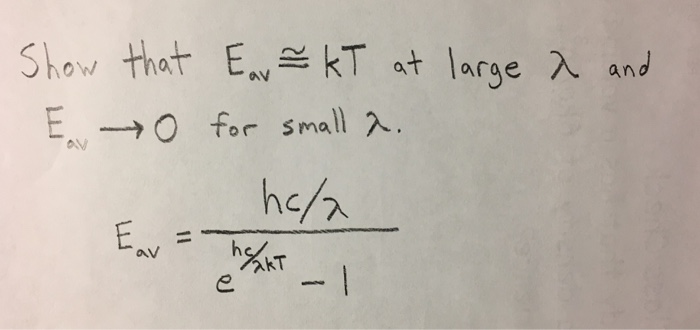 Show that E_av ≅ kT at large λ and
E_av → 0 for small λ.
E_av = (hc/λ) / (e^(hc/λkT) - 1)